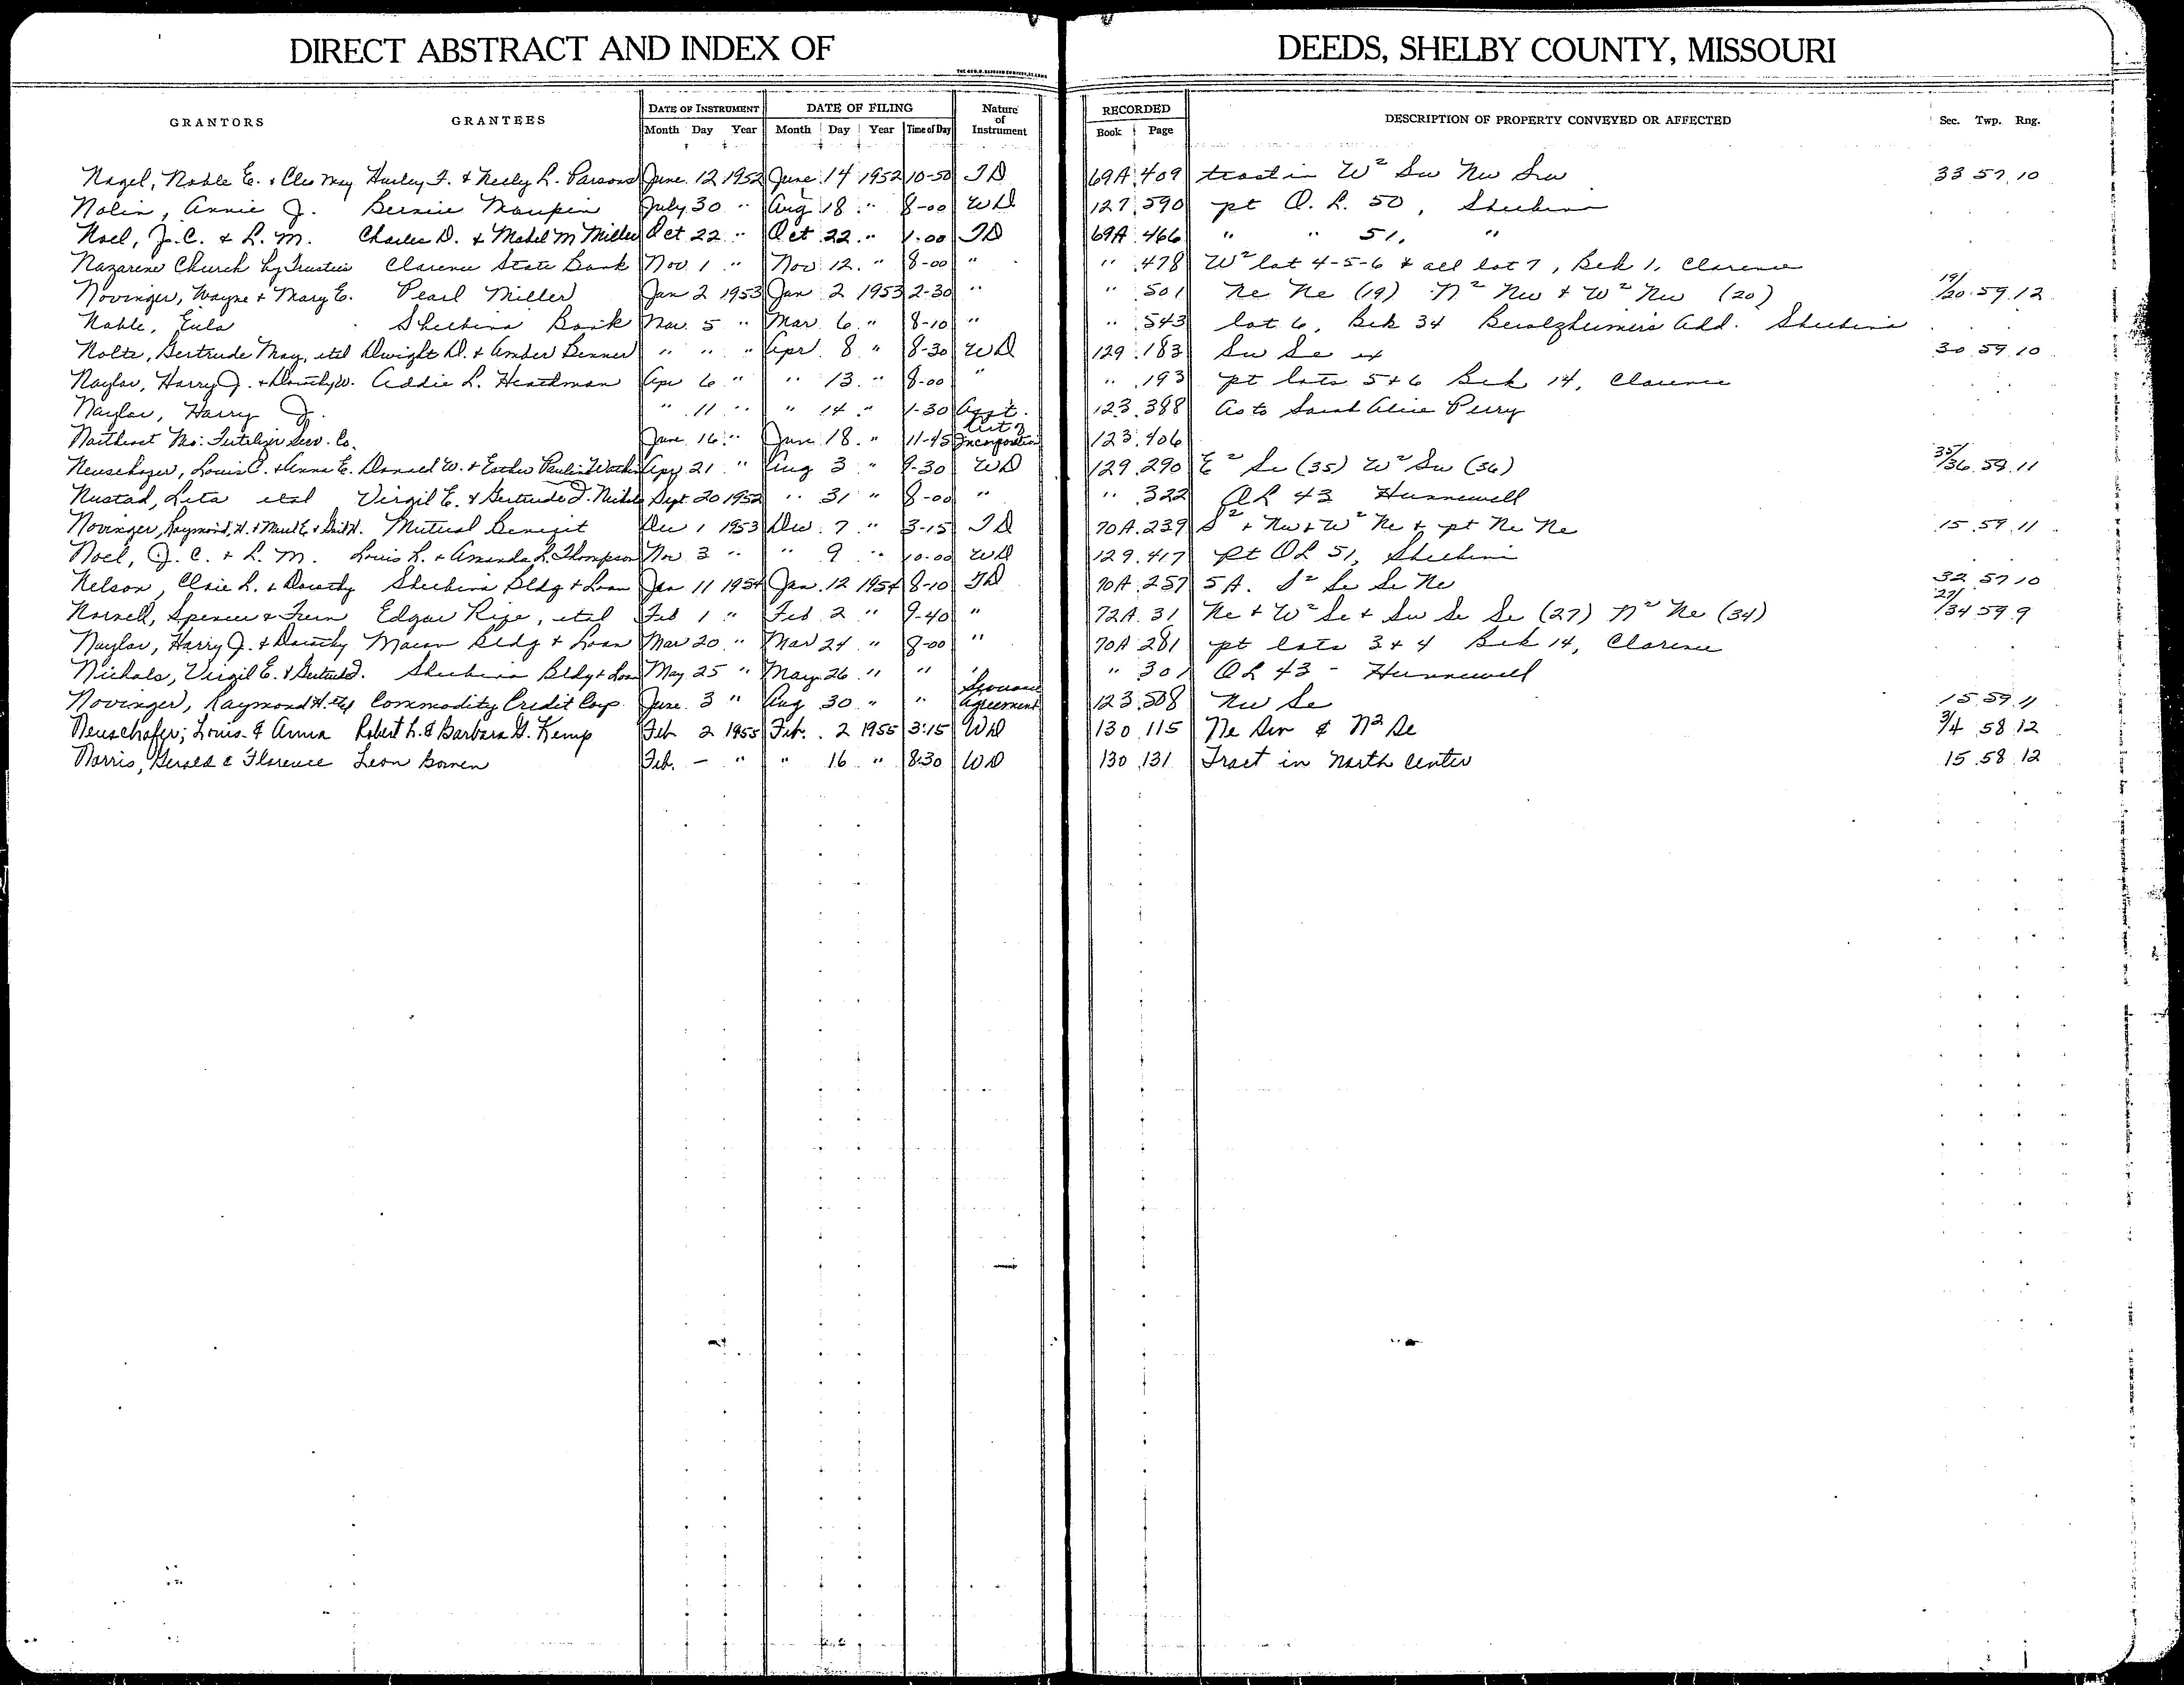 DIRECT ABSTRACT AND INDEX OF DEEDS, SHELBY COUNTY, MISSOURI
GRANTORS GRANTEES DATE OF INSTRUMENT DATE OF FILING Nature of Instrument RECORDED DESCRIPTION OF PROPERTY CONVEYED OR AFFECTED Sec. Twp. Rng.
Month Day Year Month Day Year Time of Day Book Page
Nagel, Noble E. & Cleo May Hurley F. & Neely L. Parsons June 12 1952 June 14 1952 10-50 TD 69A 409 tract in W² Sw Nw Sw 33 57 10
Nolin, Annie J. Bernie Maupin July 30 " Aug 18 " 8-00 WD 127 590 pt O. L. 50, Shelbina
Noel, J. C. & L. M. Charles D. & Mabel M Miller Oct 22 " Oct 22 " 1-00 TD 69A 466 " " 51, "
Nazarene Church by Trustees Clarence State Bank Nov 1 " Nov 12 " 8-00 " " 478 W² lot 4-5-6 & all lot 7, Blk 1, Clarence
Novinger, Wayne & Mary E. Pearl Miller Jan 2 1953 Jan 2 1953 2-30 " " 501 Ne Ne (19) N² Nw & W² Nw (20) 19/20 59 12
Noble, Eula Shelbina Bank Mar 5 " Mar 6 " 8-10 " " 543 lot 6, Blk 34 Berolzheimer's Add. Shelbina
Nolte, Gertrude May, etal Dwight D. & Amber Benner " " " Apr 8 " 8-30 WD 129 183 Sw Se ex 30 59 10
Naylor, Harry J. & Dorothy W. Addie L. Heathman Apr 6 " " 13 " 8-00 " " 193 pt lots 5 & 6 Blk 14, Clarence
Naylor, Harry J. " 11 " " 14 " 1-30 Aff't. 123 388 As to Sarah Alice Perry
Northeast Mo. Fertilizer Serv. Co. June 16 " June 18 " 11-45 Art of Incorporation 123 406
Neuschafer, Louis C. & Anna E. Donald W. & Esther Pauline Apr 21 " Aug 3 " 9-30 WD 129 290 E² Se (35) W² Sw (36) 35/36 59 11
Nustad, Leta etal Virgil E. & Gertrude D. Nichols Sept 20 1952 " 31 " 8-00 " " 322 OL 43 Hunnewell
Novinger, Raymond H. & Gail H. Mutual Benefit Dec 1 1953 Dec 7 " 3-15 TD 70A 239 S² & Nw & W² Ne & pt Ne Ne 15 59 11
Noel, J. C. & L. M. Louis L. & Amanda L. Thompson Nov 3 " " 9 " 10-00 WD 129 417 pt OL 51, Shelbina
Nelson, L. & Dorothy Shelbina Bldg & Loan Jan 11 1954 Jan 12 1954 8-10 TD 70A 257 5A. S² Se Se Ne 32 57 10
Norvell, Spencer & Fern Edgar Rige, etal Feb 1 " Feb 2 " 9-40 " 72A 31 Ne & W² Se & Sw Se Se (27) N² Ne (34) 27/34 59 9
Naylor, Harry J. & Dorothy Macon Bldg & Loan Mar 20 " Mar 24 " 8-00 " 70A 281 pt lots 3 & 4 Blk 14, Clarence
Nichols, Virgil E. & Gertrude D. Shelbina Bldg & Loan May 25 " May 26 " " " " 301 OL 43 - Hunnewell
Novinger, Raymond H. etal Commodity Credit Corp. June 3 " Aug 30 " " Severance Agreement 123 508 Nw Se 15 59 11
Neuschafer, Louis & Anna Robert L. & Barbara G. Kemp Feb 2 1955 Feb. 2 1955 3:15 WD 130 115 Ne Sw & N² Se 3/4 58 12
Norris, Gerald & Florence Leon Bowen Feb. - " " 16 " 8:30 WD 130 131 Tract in North Center 15 58 12